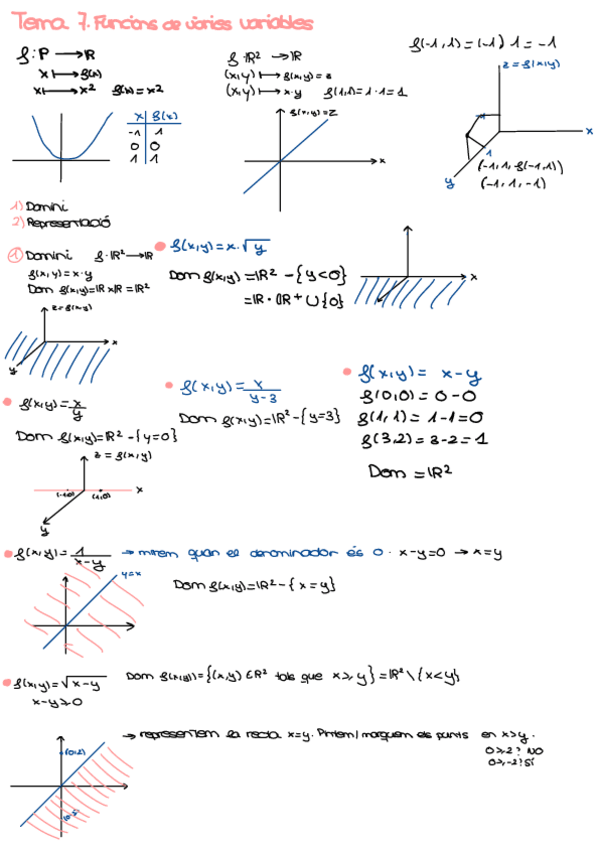 Tema 7. Funcions de vàries variables
f: P → R
x ↦ f(x)
x ↦ x² f(x) = x²
x f(x)
-1 1
0 0
1 1
f: R² → R
(x,y) ↦ f(x,y) = z
(x,y) ↦ x·y f(1,1) = 1·1 = 1
f(x,y) = z
x
f(-1,1) = (-1)·1 = -1
z = f(x,y)
x
-1
1
y
(-1,1,f(-1,1))
(-1,1,-1)
1) Domini
2) Representació
1) Domini f: R² → R
f(x,y) = x·y
Dom f(x,y) = R×R = R²
z = f(x,y)
x
y
f(x,y) = x·√y
Dom f(x,y) = R² - {y<0}
= R · R⁺ ∪ {0}
x
f(x,y) = x/y
Dom f(x,y) = R² - {y=0}
z = f(x,y)
(-1,0) (1,0) x
y
f(x,y) = x/(y-3)
Dom f(x,y) = R² - {y=3}
f(x,y) = x-y
f(0,0) = 0-0
f(1,1) = 1-1=0
f(3,2) = 3-2=1
Dom = R²
f(x,y) = 1/(x-y) → mirem quan el denominador és 0. x-y=0 → x=y
y=x
Dom f(x,y) = R² - {x=y}
f(x,y) = √(x-y)
x-y≥0
Dom f(x,y) = {(x,y) ∈ R² tals que x≥y} = R² \ {x<y}
→ representem la recta x=y. Pintem/marquem els punts en x>y.
0≥2? NO
0≥-2? SÍ
(0,2)